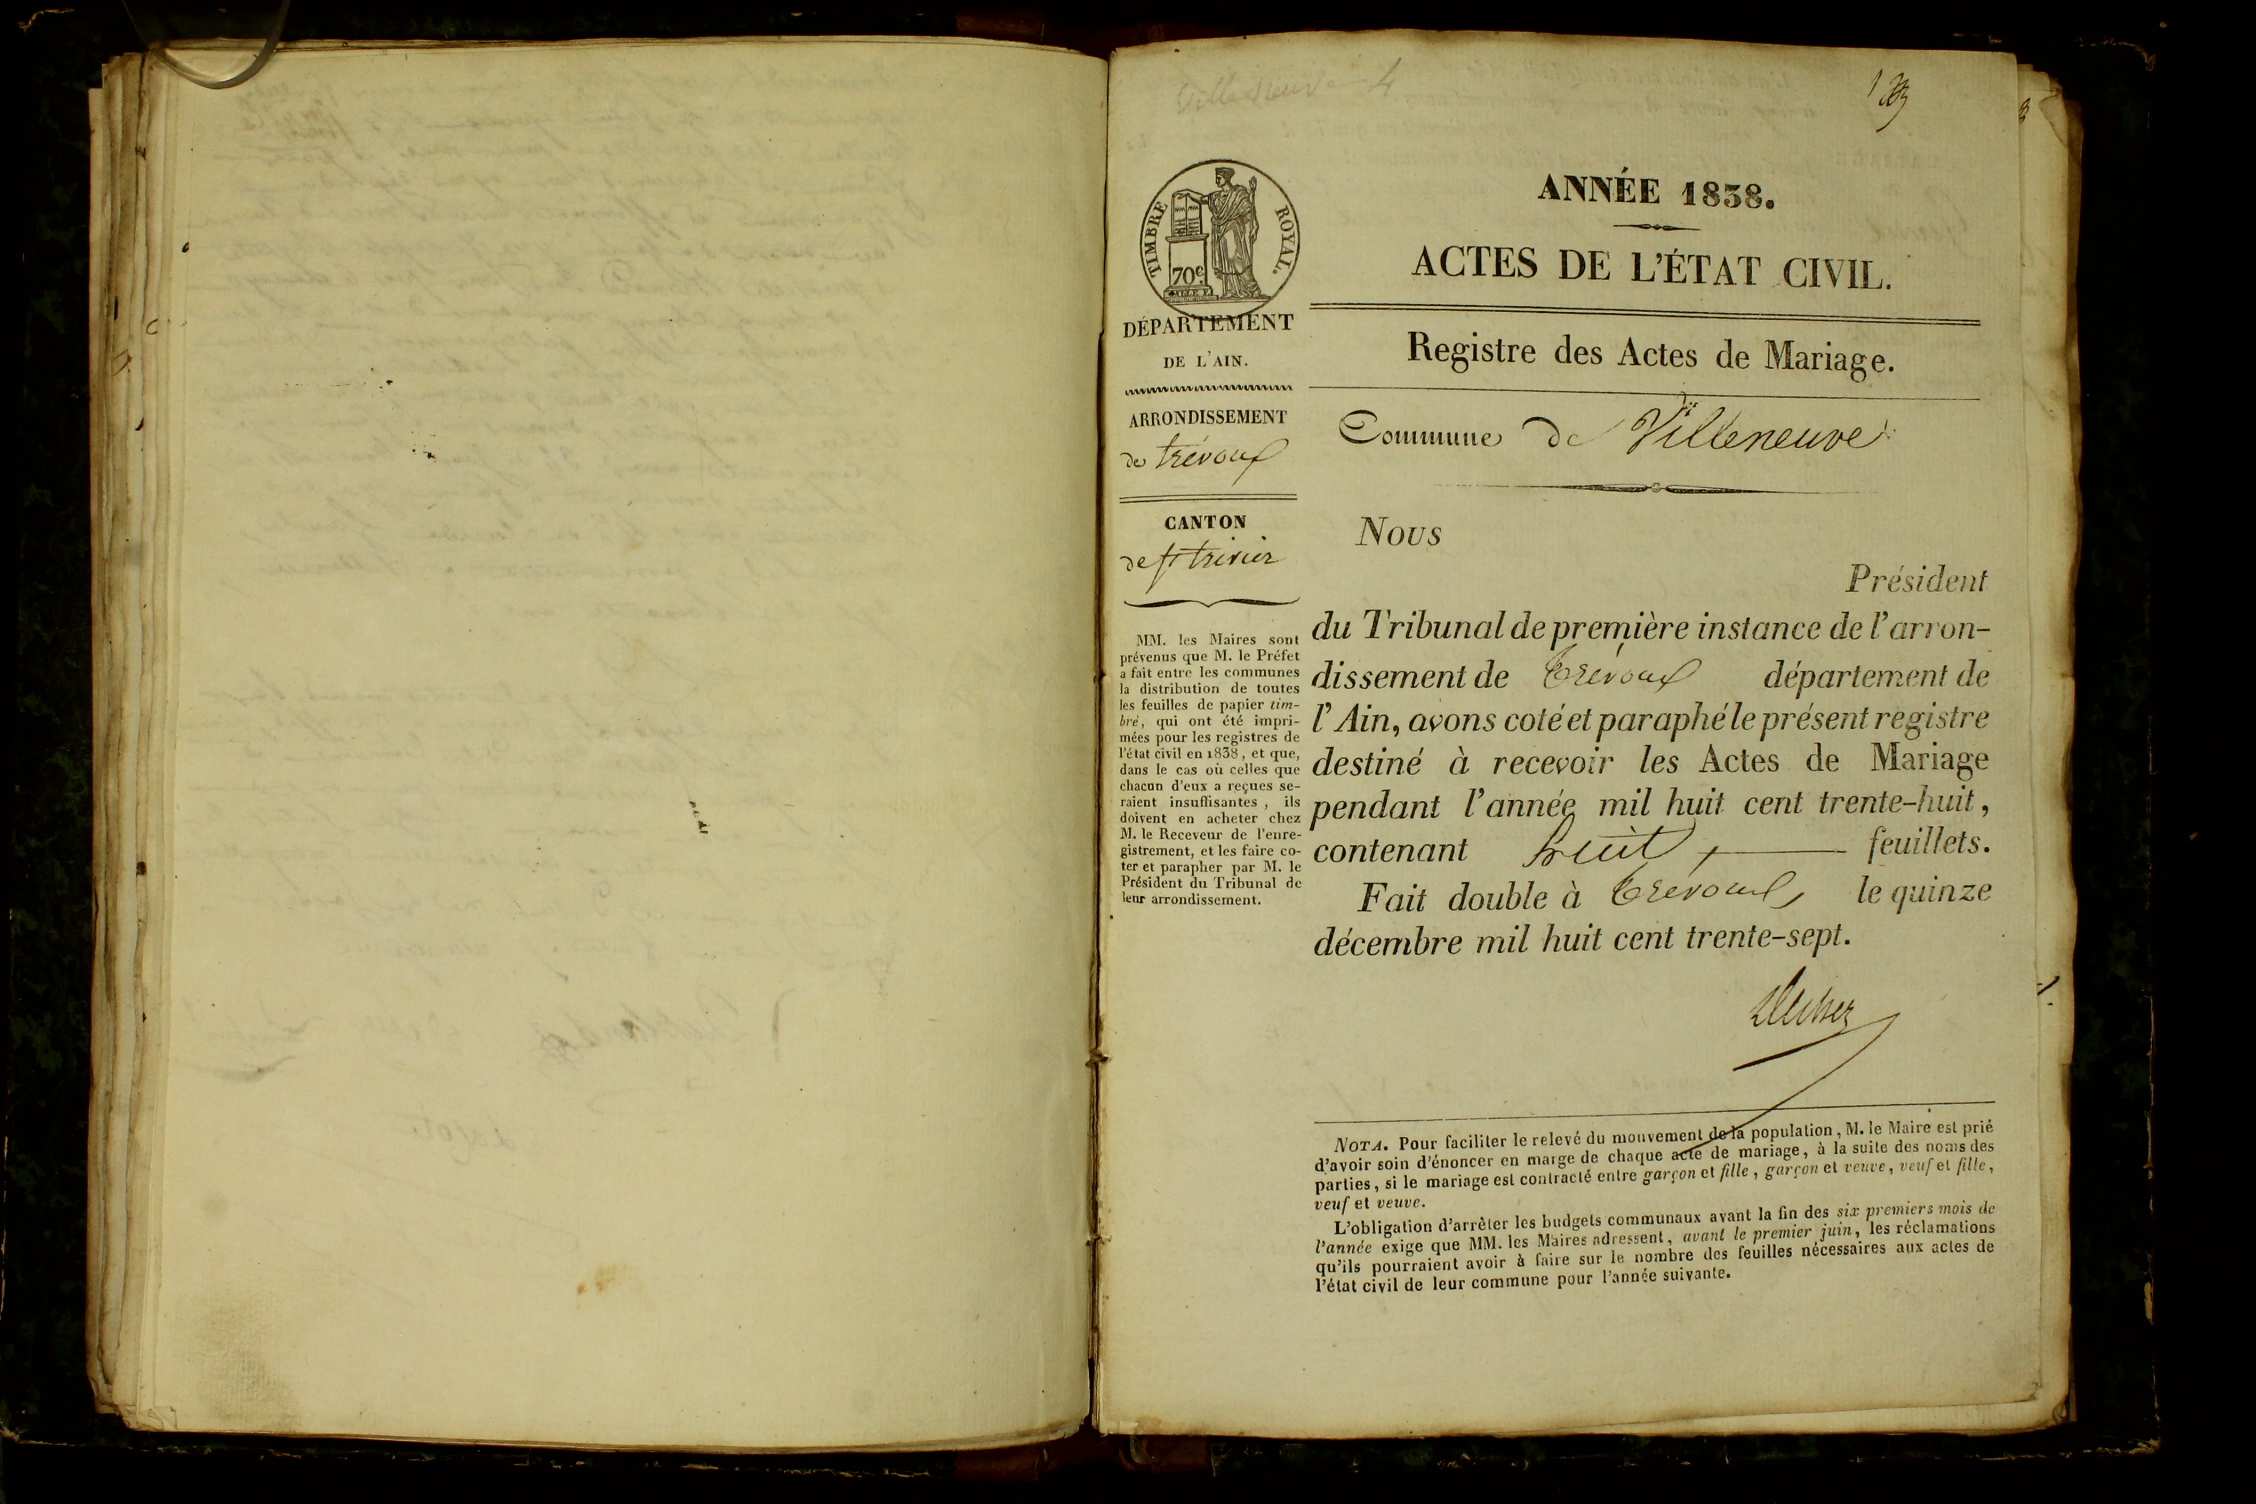 Villeneuve 4
TIMBRE ROYAL.
70c.
DÉPARTEMENT
DE L'AIN.
ARRONDISSEMENT
de trévoux
CANTON
de St trivier
MM. les Maires sont
prévenus que M. le Préfet
a fait entre les communes
la distribution de toutes
les feuilles de papier tim-
bré, qui ont été impri-
mées pour les registres de
l'état civil en 1838, et que,
dans le cas où celles que
chacun d'eux a reçues se-
raient insuffisantes, ils
doivent en acheter chez
M. le Receveur de l'enre-
gistrement, et les faire co-
ter et parapher par M. le
Président du Tribunal de
leur arrondissement.
ANNÉE 1838.
ACTES DE L'ÉTAT CIVIL.
Registre des Actes de Mariage.
Commune de Villeneuve
Nous
Président
du Tribunal de première instance de l'arron-
dissement de Trévoux département de
l'Ain, avons coté et paraphé le présent registre
destiné à recevoir les Actes de Mariage
pendant l'année mil huit cent trente-huit,
contenant huit feuillets.
Fait double à Trévoux, le quinze
décembre mil huit cent trente-sept.
NOTA. Pour faciliter le relevé du mouvement de la population, M. le Maire est prié
d'avoir soin d'énoncer en marge de chaque acte de mariage, à la suite des noms des
parties, si le mariage est contracté entre garçon et fille, garçon et veuve, veuf et fille,
veuf et veuve.
L'obligation d'arrêter les budgets communaux avant la fin des six premiers mois de
l'année exige que MM. les Maires adressent, avant le premier juin, les réclamations
qu'ils pourraient avoir à faire sur le nombre des feuilles nécessaires aux actes de
l'état civil de leur commune pour l'année suivante.